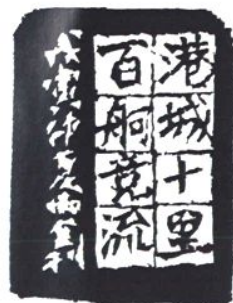 港城十里
百舸竞流
戊寅仲夏